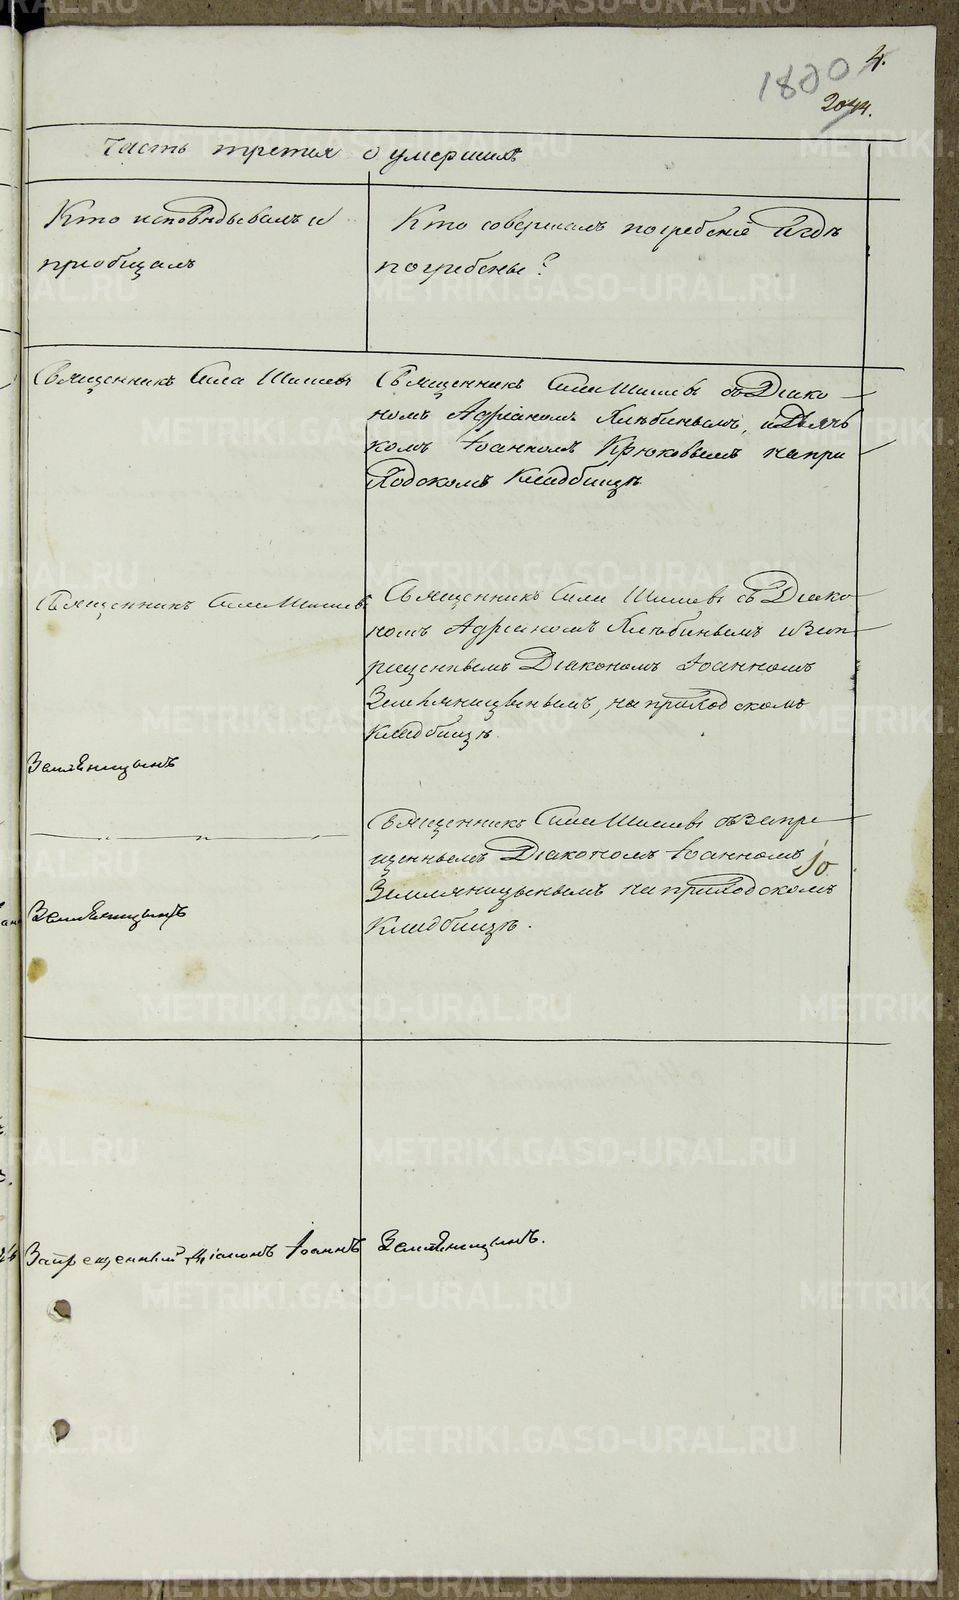 4.
1820
2044.
Часть третия о умершихъ
Кто исповѣдывалъ и
приобщалъ
Кто совершалъ погребенiе и гдѣ
погребены?
Священникъ Сила Шишевъ
Священникъ Сила Шишевъ съ Дiако
номъ Адрiаномъ Хлѣбинымъ, и Дьяч
комъ Iоанномъ Крюковымъ на при
ходскомъ Кладбищѣ
Священникъ Сила Шишевъ
Священникъ Сила Шишевъ съ Дiако
номъ Адрiаномъ Хлѣбинымъ и Зап
рещеннымъ Дiакономъ Iоанномъ
Земляницынымъ, на приходскомъ
Кладбищѣ.
Земляницынъ
Священникъ Сила Шишевъ съ Запре
щеннымъ Дiакономъ Iоанномъ
Земляницынымъ на приходскомъ
Кладбищѣ.
Земляницынъ
Запрещенный Дiаконъ Iоаннъ Земляницынъ.
METRIKI.GASO-URAL.RU